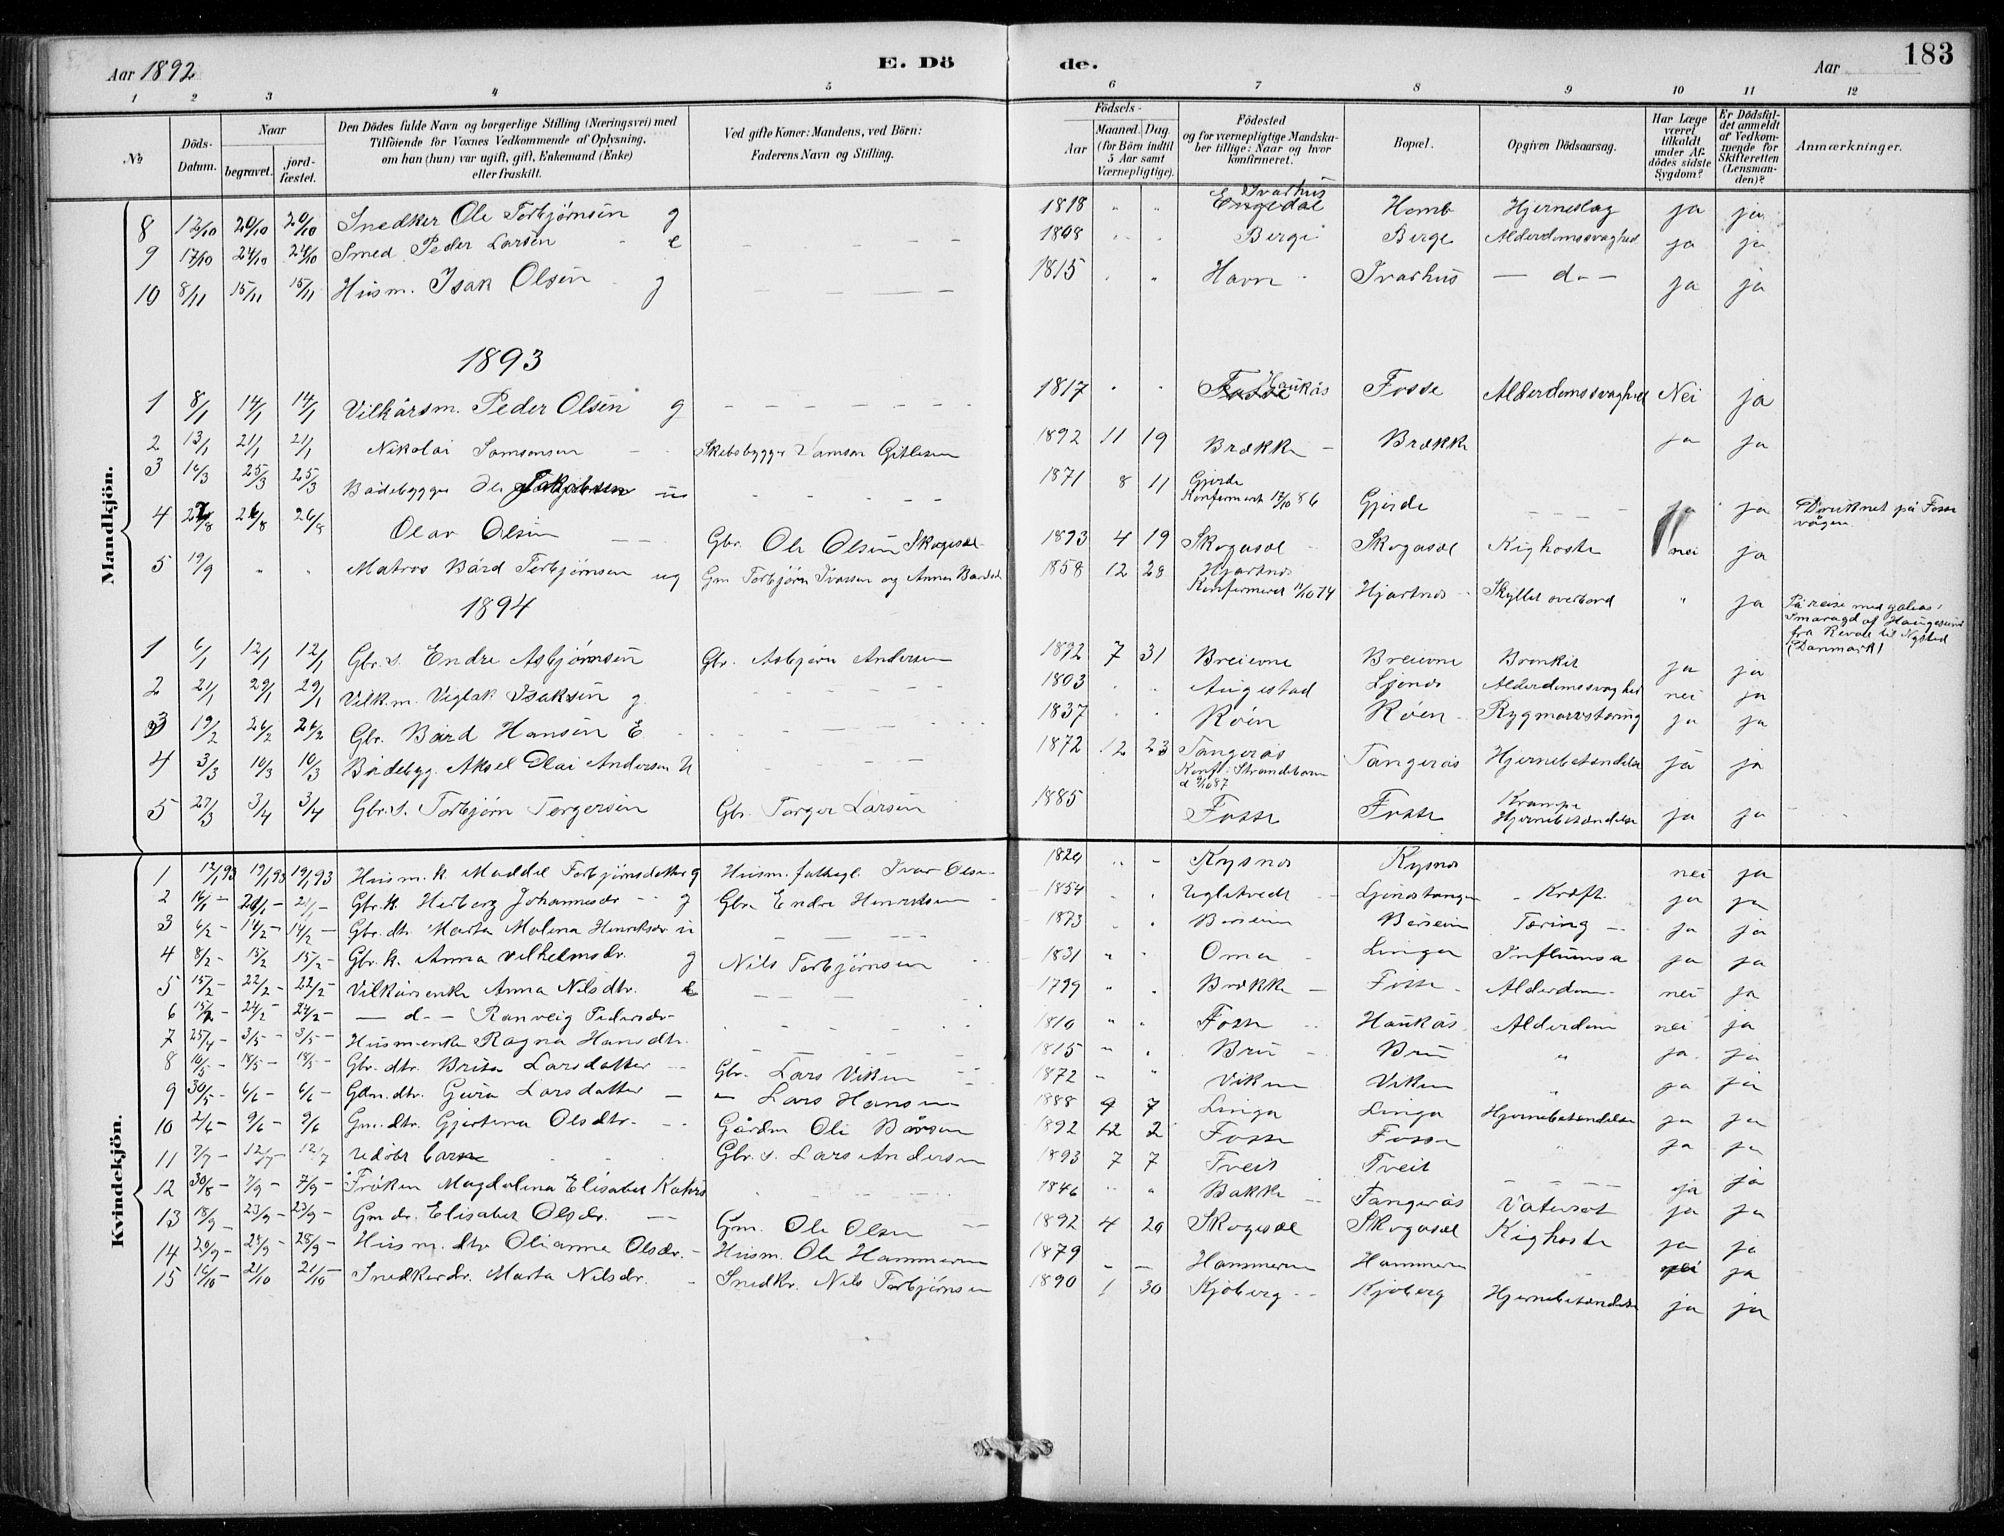 Aar 1892
E. Dö
de.
Aar
183
1 2 3 4 5 6 7 8 9 10 11 12
№
Döds-Datum.
Naar
begravet.
jord-fæstet.
Den Dödes fulde Navn og borgerlige Stilling (Næringsvei) med
Tilföiende for Voxnes Vedkommende af Oplysning,
om han (hun) var ugift, gift, Enkemand (Enke)
eller fraskilt.
Ved gifte Koner: Mandens, ved Börn:
Faderens Navn og Stilling.
Födsels-
Aar
Maaned. Dag.
(for Börn indtil
5 Aar samt
Værnepligtige).
Födested
og for værnepligtige Mandska-
ber tillige: Naar og hvor
konfirmeret.
Bopæl.
Opgiven Dödsaarsag.
Har Læge
været
tilkaldt
under Af-
dödes sidste
Sygdom?
Er Dödsfal-
det anmeldt
af Vedkom-
mende for
Skifteretten
(Lensman-
den)?
Anmærkninger.
Mandkjön.
8 12/10 20/10 20/10 Snedker Ole Torbjørnsen g 1818 " " Engedal Ivarhus Homb Hjerneslag ja ja
9 17/10 24/10 24/10 Smed Peder Larsen e — — — — 1808 " " Berge Berge Alderdomssvaghed ja ja
10 8/11 15/11 15/11 Husm. Isak Olsen g — — — — 1815 " " Havn Ivarhus — d — ja ja
1893
1 8/1 14/1 14/1 Vilkårsm. Peder Olsen g — — — — 1817 " " Fosse Haukås Fosse Alderdomssvaghed Nei ja
2 13/1 21/1 21/1 Nikolai Samsonsen Skibsbygger Samson Gitlesen 1892 11 19 Brække Brække ja ja
3 16/3 25/3 25/3 Bådebygger Ole Jakobsen u — — — — 1871 8 11 Gjerde Konfirmeret 17/10 86 Gjerde — — — ja ja Druknet på Fosse vågen
4 22/8 26/8 26/8 Olav Olsen — — Gbr. Ole Olsen Skogesæl 1893 4 19 Skogasæl Skogasæl Kighoste nei ja
5 19/9 " " Matros Bård Torbjørnsen ug Gm Torbjørn Ivarsen og Anna 1858 12 28 Hjartnes Konfirmeret 11/10 74 Hjartnes Skyllet overbord " ja På reise med galeas Smaragd af Haugesund fra Reval til Nysted (Danmark)
1894
1 6/1 12/1 12/1 Gbr. s. Endre Asbjørnsen Gbr. Asbjørn Andersen 1892 7 31 Breievne Breievne Bronkit ja ja
2 21/1 29/1 29/1 Vilk.m. Viglik Isaksen g. — — — — 1803 " " Augestad Ljonås Alderdomssvaghed nei ja
3 19/2 26/2 26/2 Gbr. Bård Hansen E — — — — 1837 " " Røen Røen Rygmarvstæring ja ja
4 3/3 10/3 10/3 Bådebyg. Aksel Olai Andersen U — — — — 1872 12 23 Tangerås Konf. Strandebarm d 9/10 87 Tangerås Hjernebetændelse ja ja
5 27/3 3/4 3/4 Gbr. s. Torbjørn Torgersen Gbr. Torger Larsen 1885 Fosse Fosse Krampe Hjernebetændelse ja ja
Kvindekjön.
1 12/1 93 19/1 93 19/1 93 Husm. k. Maddel Torbjørnsdatter g Husm. Ivar Olsen 1820 " " Kysnes Kysnes nei ja
2 14/1 – 21/1 – 21/1 – Gbr. k. Herborg Johannesdr. g Gbr. Endre Henriksen 1854 Ugletvedt Ljonestangen Kræft ja ja
3 6/2 – 14/2 – 14/2 – Gbr. dtr. Marta Malena Henriksdr u — — — 1873 Berseim Berseim Tæring ja ja
4 8/2 – 15/2 15/2 – Gbr. k. Anna Vilhelmsdr. g Nils Torbjørnsen 1831 " " Oma Linga Influensa ja ja
5 15/2 – 22/2 – 22/2 – Vilkårsenke Anna Nilsdtr. e — — 1799 " " Brække Fosse Alderdom nei ja
6 15/2 – 24/2 – 24/2 – — d — Ranveig Pedersdr — — — — 1810 " " Fosse Haukås Alderdom nei ja
7 25/4 – 3/5 – 3/5 – Husmenke Ragna Hansdtr. — — — — 1815 " " Bru Bru " ja ja
8 10/5 – 18/5 – 18/5 – Gbr. dtr. Brita Larsdatter Gbr. Lars Viken 1872 " " Viken Viken " ja ja
9 30/5 – 6/6 – 6/6 – Gdm. dtr. Gura Larsdatter — — Lars Hansen 1888 9 7 Linga Linga Hjernebetændelse ja ja
10 2/6 – 9/6 – 9/6 Gm. dtr. Gjertina Olsdtr. Gårdm Ole Bårsen 1892 12 2 Fosse Fosse " ja ja
11 7/7 – 12/7 – 12/7 udøbt barn Gbr. s. Lars Andersen 1893 7 7 Tveit Tveit ja
12 30/8 – 7/9 – 7/9 – Frøken Magdalena Elisabet 1846 " " Bakke Tangerås Vatersot ja ja
13 18/9 – 23/9 – 23/9 – Gm dr. Elisabet Olsdr. — Gm. Ole Olsen 1892 4 20 Skogesæl Skogasæl Kighoste ja ja
14 20/9 – 28/9 – 28/9 – Husm. dtr Olianna Olsdr. – Husm. Ole Hammeren 1879 – – Hammeren Hammeren nei ja
15 16/10 – 21/10 21/10 – Snedkerdr. Marta Nilsdr. – Snedkr. Nils Torbjørnsen 1890 1 30 Kjøberg Kjøberg Hjernebetændelse ja ja